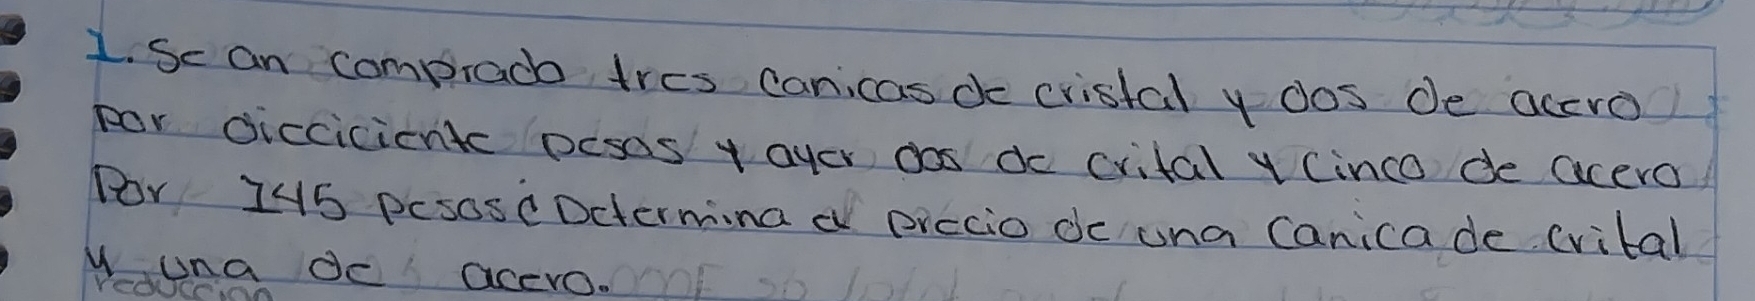 1. Se an comprado tres canicas de cristal y dos de acero
por dicciciente pesos y ayer dos de crital y cinco de acero
Por 145 pesos ¿Determina el precio de una canica de crital
y una de acero.
reduccion